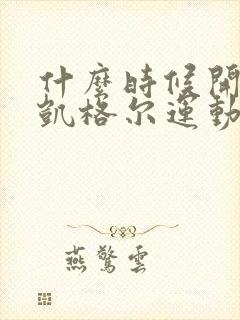 什麼時候開
凱格尔運動
燕驚雲